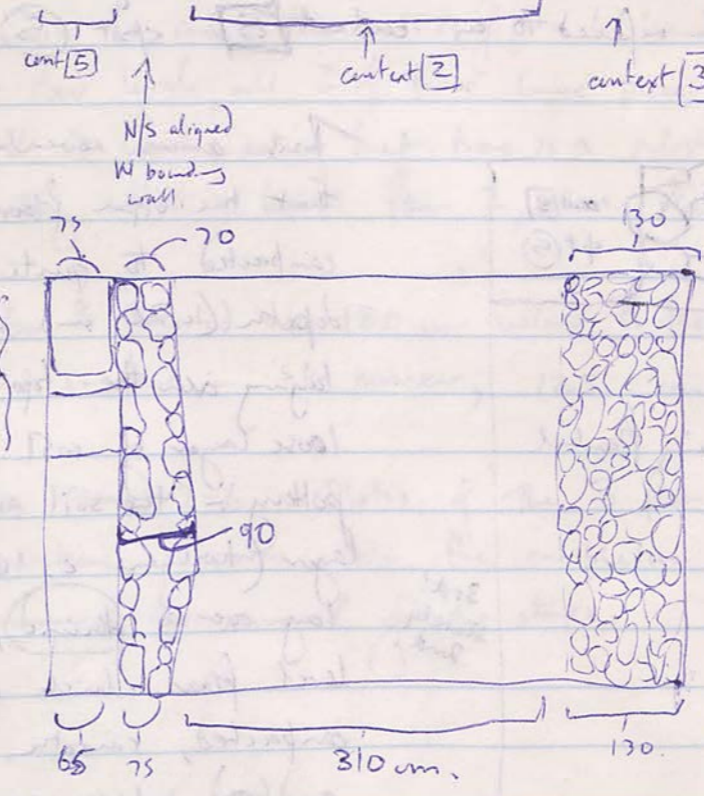 cont 5
context 2
context 3
N/S aligned
W bounding
wall
75
70
130
90
65
75
310 cm.
130.